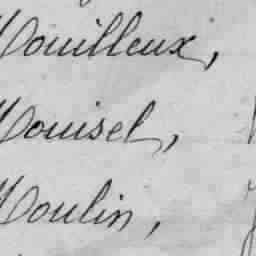 Mouilleux,
Mouisel,
Moulin,